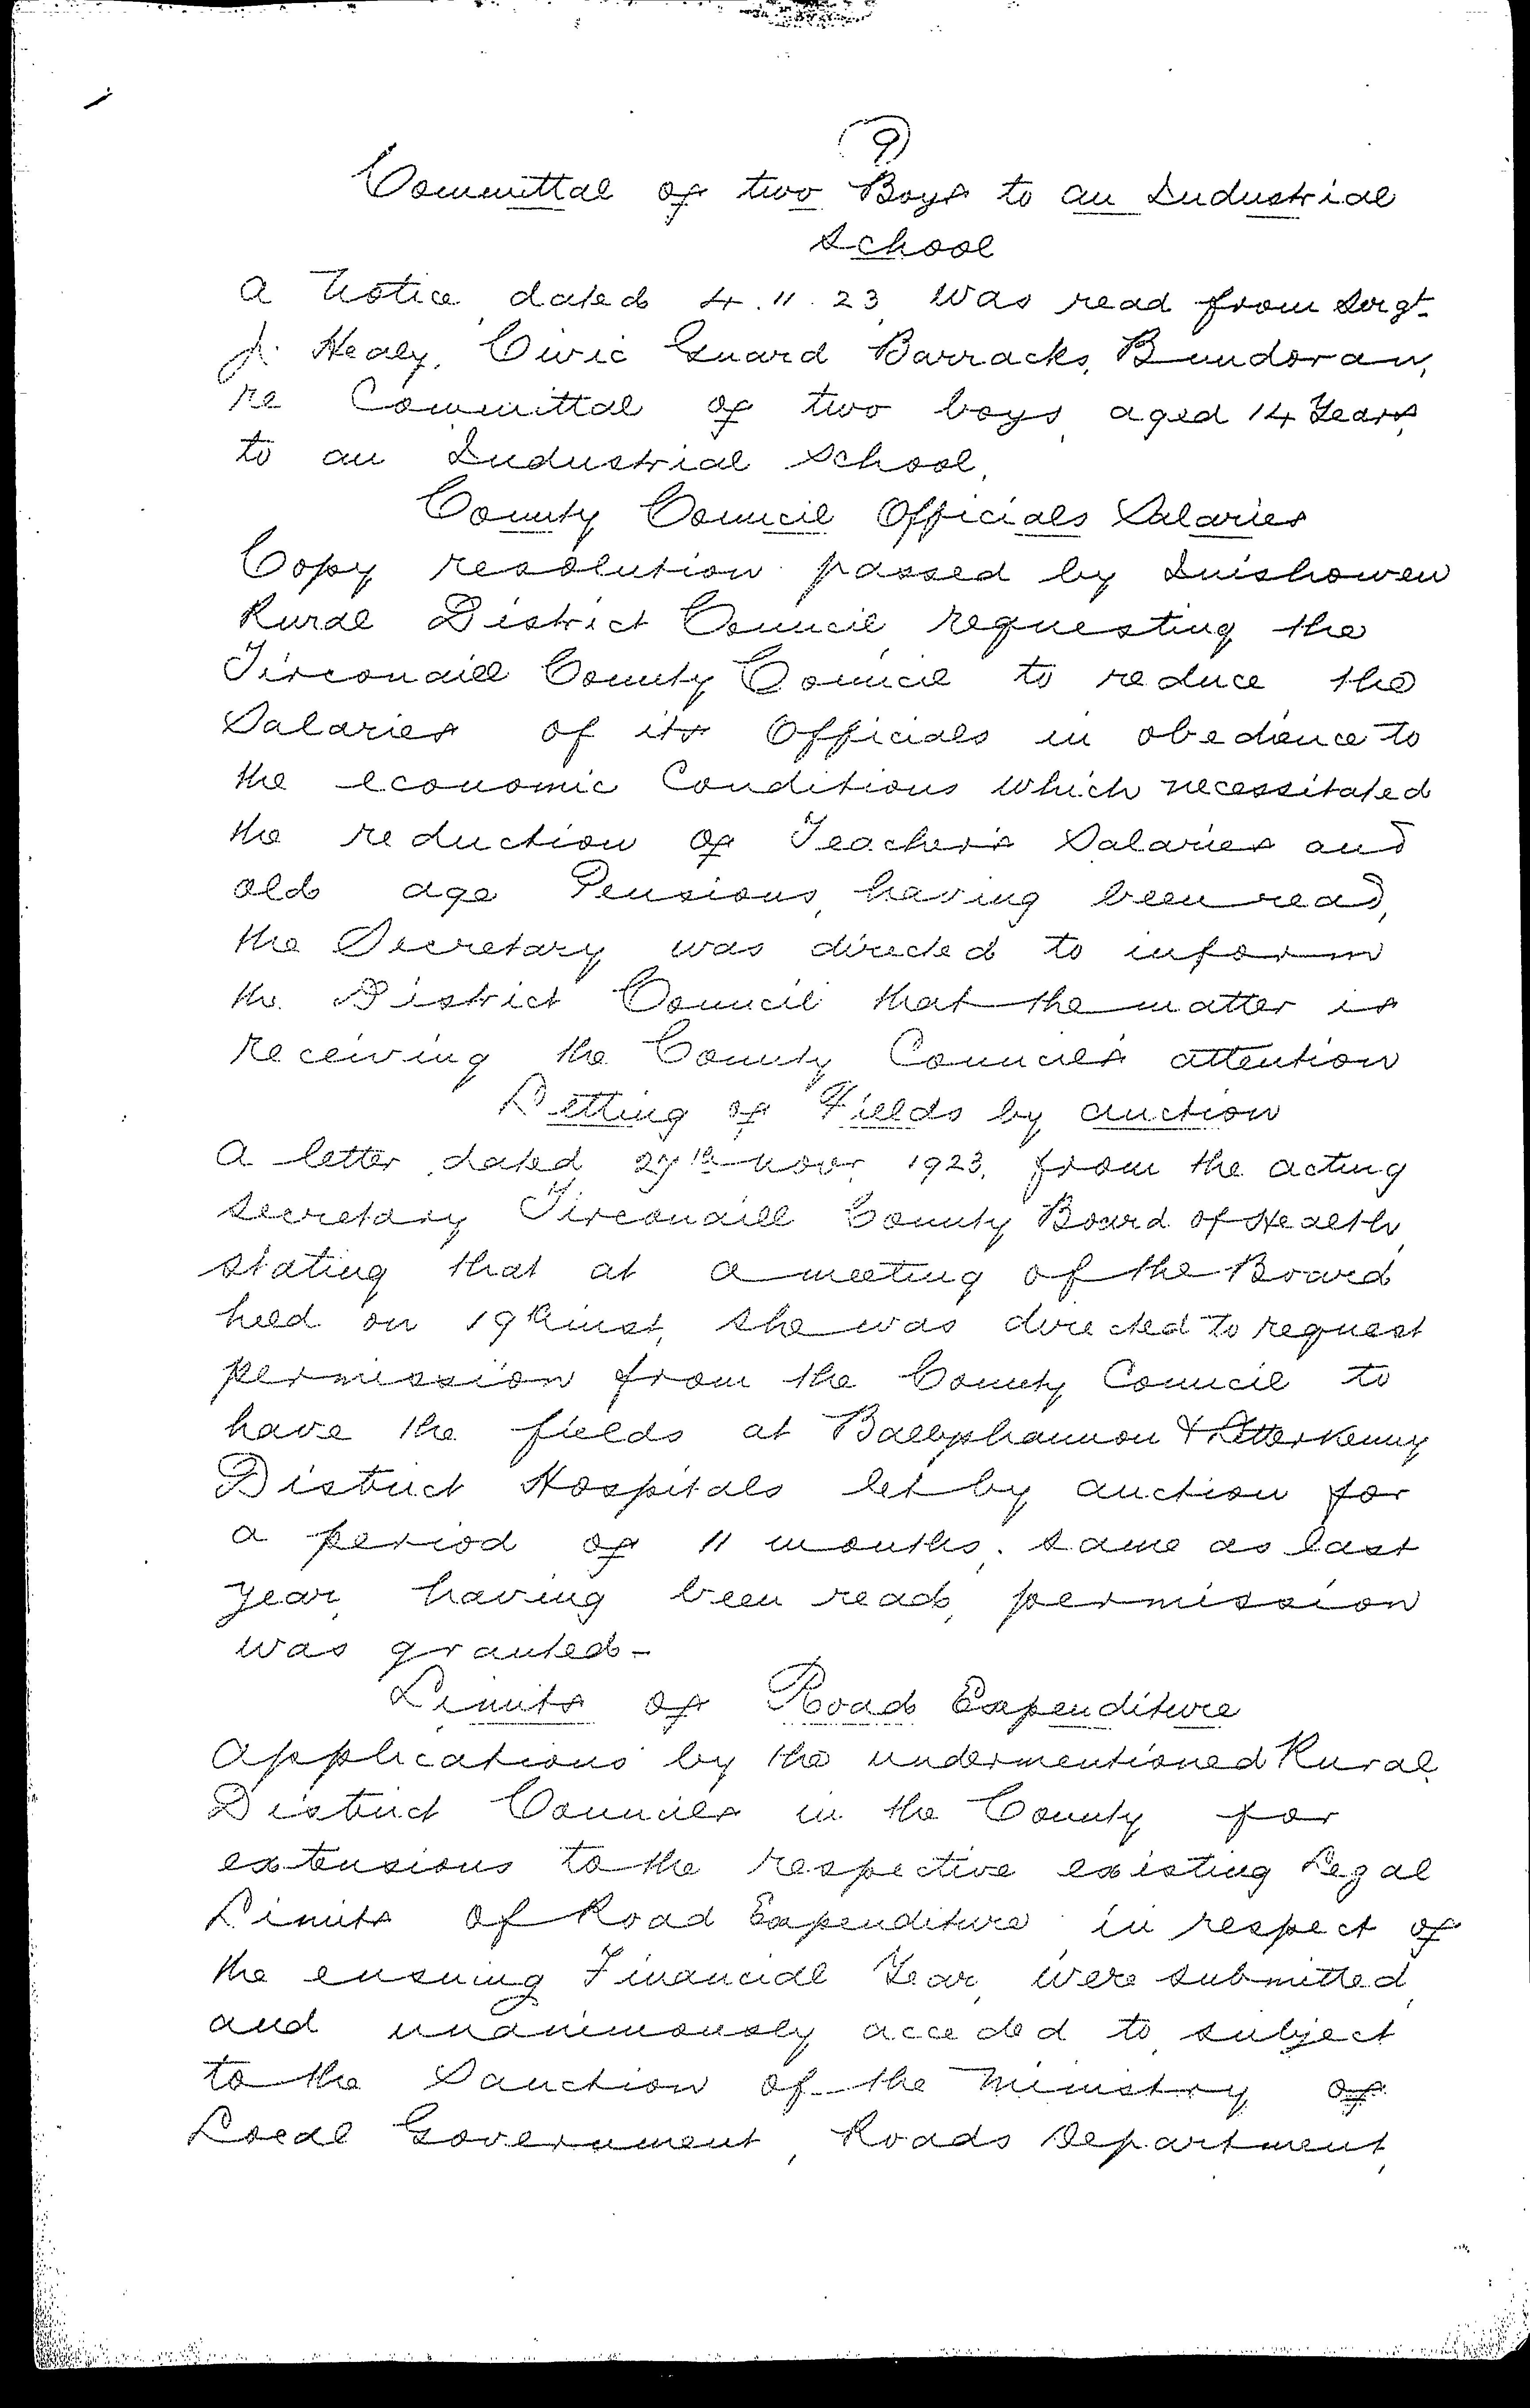 9
Committal of two Boys to an Industrial
School
A Notice, dated 4.11.23, was read from Sergt.
J. Healy, Civic Guard Barracks, Bundoran,
re Committal of two boys, aged 14 Years,
to an Industrial School.
County Council Officials Salaries
Copy resolution passed by Inishowen
Rural District Council, requesting the
Tirconaill County Council to reduce the
Salaries of its Officials in obedience to
the economic Conditions which necessitated
the reduction of Teacher's Salaries and
old age Pensions, having been read,
the Secretary was directed to inform
the District Council that the matter is
receiving the County Council's attention
Letting of Fields by auction
A letter, dated, 27th Novr, 1923, from the acting
secretary Tirconaill County Board of Health,
stating that at a meeting of the Board
held on 19th inst, she was directed to request
permission from the County Council to
have the fields at Ballyshannon & Letterkenny
District Hospitals let by auction for
a period of 11 months, same as last
year, having been read, permission
was granted -
Limits of Road Expenditure
Applications by the undermentioned Rural
District Councils in the County for
extensions to the respective existing Legal
Limits of Road Expenditure in respect of
the ensuing Financial Year, were submitted,
and unanimously acceded to, subject
to the Sanction of the Ministry of
Local Government, Roads Department,